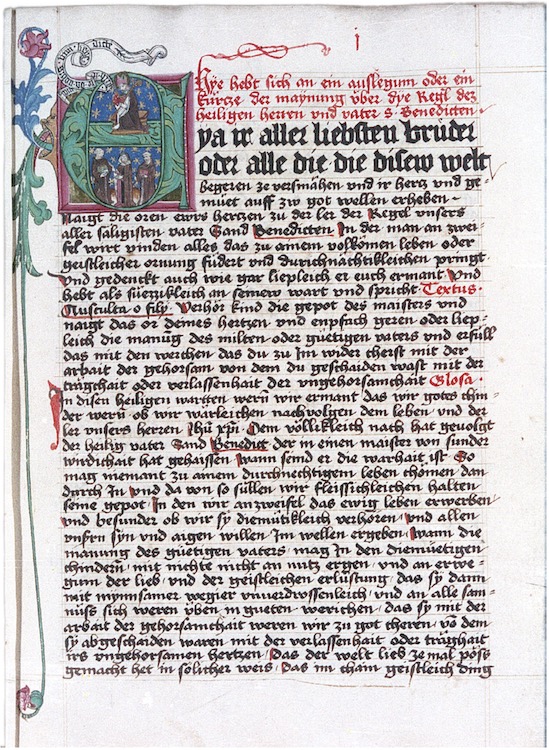 i
Hye hebt sich an ein auslegum oder ein
kürcze der maynung über dye Regl des
heiligen herren und vater s. Benedicten.
Eya ir aller liebsten brüder
oder alle die die disew welt
begeren ze versmähen und ir hertz und ge-
müet auff zw got wellen erheben.
Naigt die oren ewrs hertzen zu der ler der Regel unsers
aller säligisten vater Sand Benedicten. In der man an zwei-
fel wirt vinden alles das zu ainem volkömen leben oder
geistleicher ornung fudert und durichnächtikleichen pringt
Und gedenckt auch wie gar liepleich er euch ermant. Und
hebt als süezzikleich an seinew wart und spricht. Textus.
Ausculta o fily. Verhör kind die gepot des maisters und
naigt das or deines hertzen und enpfach geren oder liep-
leich die manūg des milten oder güetigen vaters und erfüll
das mit den werchen das du zu Im wider cherst mit der
arbait der gehorsam von dem du geschaiden wast mit der
träghait oder verlassenhait der ungehorsamchait Glosa.
In disen heiligen wartten werū wir ermant das wir gotes chin-
der werū ob wir wärleichen nachvolgen dem leben und der
ler unsers herren Jhū xpī. Dem völlikleich nach hat gevolgt
der heilig vater Sand Benedict der in einen maister von sunder
wirdichait hat gehaissen wann seind er die warhait ist. So
mag niemant zu ainem durchnechtigem leben chömen dan
durch In und da von so süllen wir fleissichleichen halten
seine gepot. In den wir an zweifel das ewig leben erwerben
und besunder ob wir sy diemütikleich verhören. und allen
unsrn syn und aigen willen Im wellen ergeben. Wann die
manung des güetigen vaters mag In den diemüetigen
chindern. mit nichte nicht an nutz ergen. und an erwe-
gum der lieb. und der geistleichen erlüstung. das sy dann
mit mynnsamer wegier unverdrossenleich. und an alle sam-
nüss sich weren üben. in gueten werichen. das sy mit der
arbait der gehorsamchait weren wir zu got cheren. vō dem
sy abgeschaiden waren mit der verlassenhait oder träghait
irs ungehorsamen hertzen. das der welt lieb ze mal pöss
gemacht het in solicher weis. das im chain geistleich ding